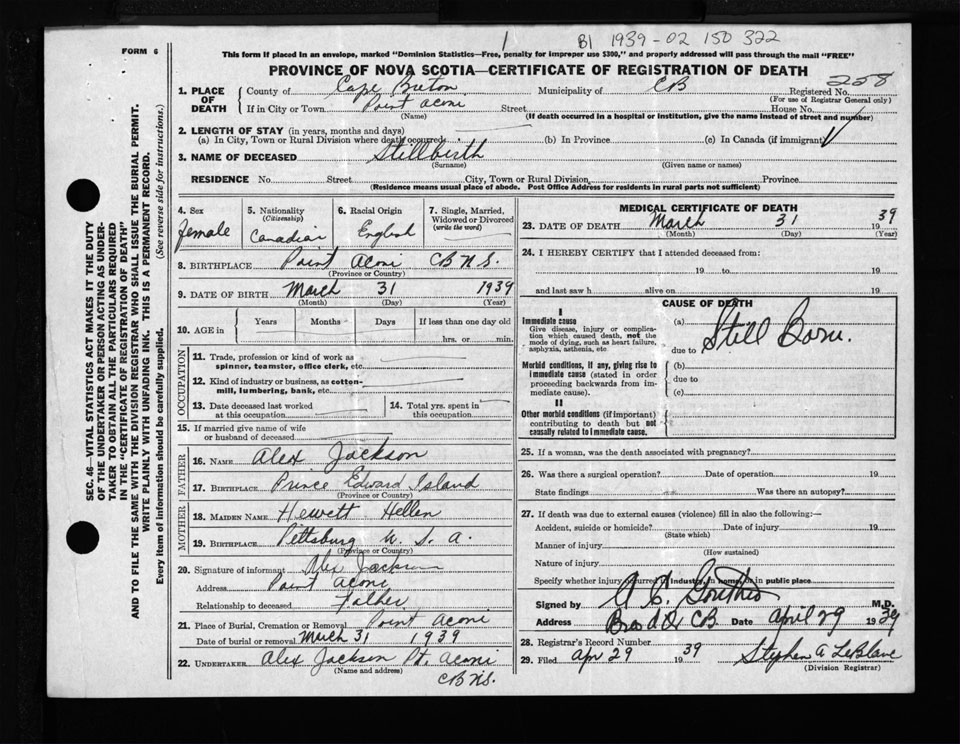 B1 1939-02 150 322
FORM 6
This form if placed in an envelope, marked "Dominion Statistics—Free, penalty for improper use $300," and properly addressed will pass through the mail "FREE"
PROVINCE OF NOVA SCOTIA—CERTIFICATE OF REGISTRATION OF DEATH
258
1. PLACE OF DEATH County of Cape Breton Municipality of CB Registered No.
(For use of Registrar General only)
If in City or Town Point Aconi Street House No.
(Name) (If death occurred in a hospital or institution, give the name instead of street and number)
2. LENGTH OF STAY (in years, months and days)
(a) In City, Town or Rural Division where death occurred (b) In Province (c) In Canada (if immigrant)
3. NAME OF DECEASED Stillbirth
(Surname) (Given name or names)
RESIDENCE No. Street City, Town or Rural Division Province
(Residence means usual place of abode. Post Office Address for residents in rural parts not sufficient)
4. Sex female
5. Nationality (Citizenship) Canadian
6. Racial Origin English
7. Single, Married, Widowed or Divorced (write the word)
8. BIRTHPLACE Point Aconi CB N.S.
(Province or Country)
9. DATE OF BIRTH March 31 1939
(Month) (Day) (Year)
10. AGE in Years Months Days If less than one day old
hrs. or min.
OCCUPATION
11. Trade, profession or kind of work as
spinner, teamster, office clerk, etc.
12. Kind of industry or business, as cotton-
mill, lumbering, bank, etc.
13. Date deceased last worked at this occupation
14. Total yrs. spent in this occupation
15. If married give name of wife
or husband of deceased
FATHER
16. NAME Alex Jackson
17. BIRTHPLACE Prince Edward Island
(Province or Country)
MOTHER
18. MAIDEN NAME Hewett Hellen
19. BIRTHPLACE Pittsburg U. S. A.
(Province or Country)
20. Signature of informant Alex Jackson
Address Point Aconi
Relationship to deceased Father
21. Place of Burial, Cremation or Removal Point Aconi
Date of burial or removal March 31 1939
22. UNDERTAKER Alex Jackson Pt. Aconi
(Name and address) CB N.S.
MEDICAL CERTIFICATE OF DEATH
23. DATE OF DEATH March 31 39
(Month) (Day) (Year)
24. I HEREBY CERTIFY that I attended deceased from:
19 to 19
and last saw h alive on 19
CAUSE OF DEATH
I
Immediate cause
Give disease, injury or complica-
tion which caused death, not the
mode of dying, such as heart failure,
asphyxia, asthenia, etc
(a) Still Born.
due to
Morbid conditions, if any, giving rise to
immediate cause (stated in order
proceeding backwards from im-
mediate cause).
(b)
due to
(c)
II
Other morbid conditions (if important)
contributing to death but not
causally related to immediate cause.
25. If a woman, was the death associated with pregnancy?
26. Was there a surgical operation? Date of operation 19
State findings Was there an autopsy?
27. If death was due to external causes (violence) fill in also the following:—
Accident, suicide or homicide? Date of injury 19
(State which)
Manner of injury
(How sustained)
Nature of injury
Specify whether injury occurred in industry, in home, or in public place
Signed by M.D.
Address CB Date April 29 1939
28. Registrar's Record Number
29. Filed Apr 29 1939 Stephen A LeBlanc
(Division Registrar)
SEC. 46—VITAL STATISTICS ACT MAKES IT THE DUTY
OF THE UNDERTAKER OR PERSON ACTING AS UNDER-
TAKER TO OBTAIN ALL THE PARTICULARS REQUIRED
IN THE "CERTIFICATE OF REGISTRATION OF DEATH"
AND TO FILE THE SAME WITH THE DIVISION REGISTRAR WHO SHALL ISSUE THE BURIAL PERMIT.
WRITE PLAINLY WITH UNFADING INK. THIS IS A PERMANENT RECORD.
Every item of information should be carefully supplied. (See reverse side for instructions.)